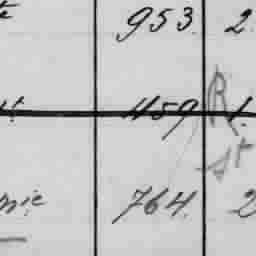 te 953. 2.
1159 R 1.
St
nie 764. 2